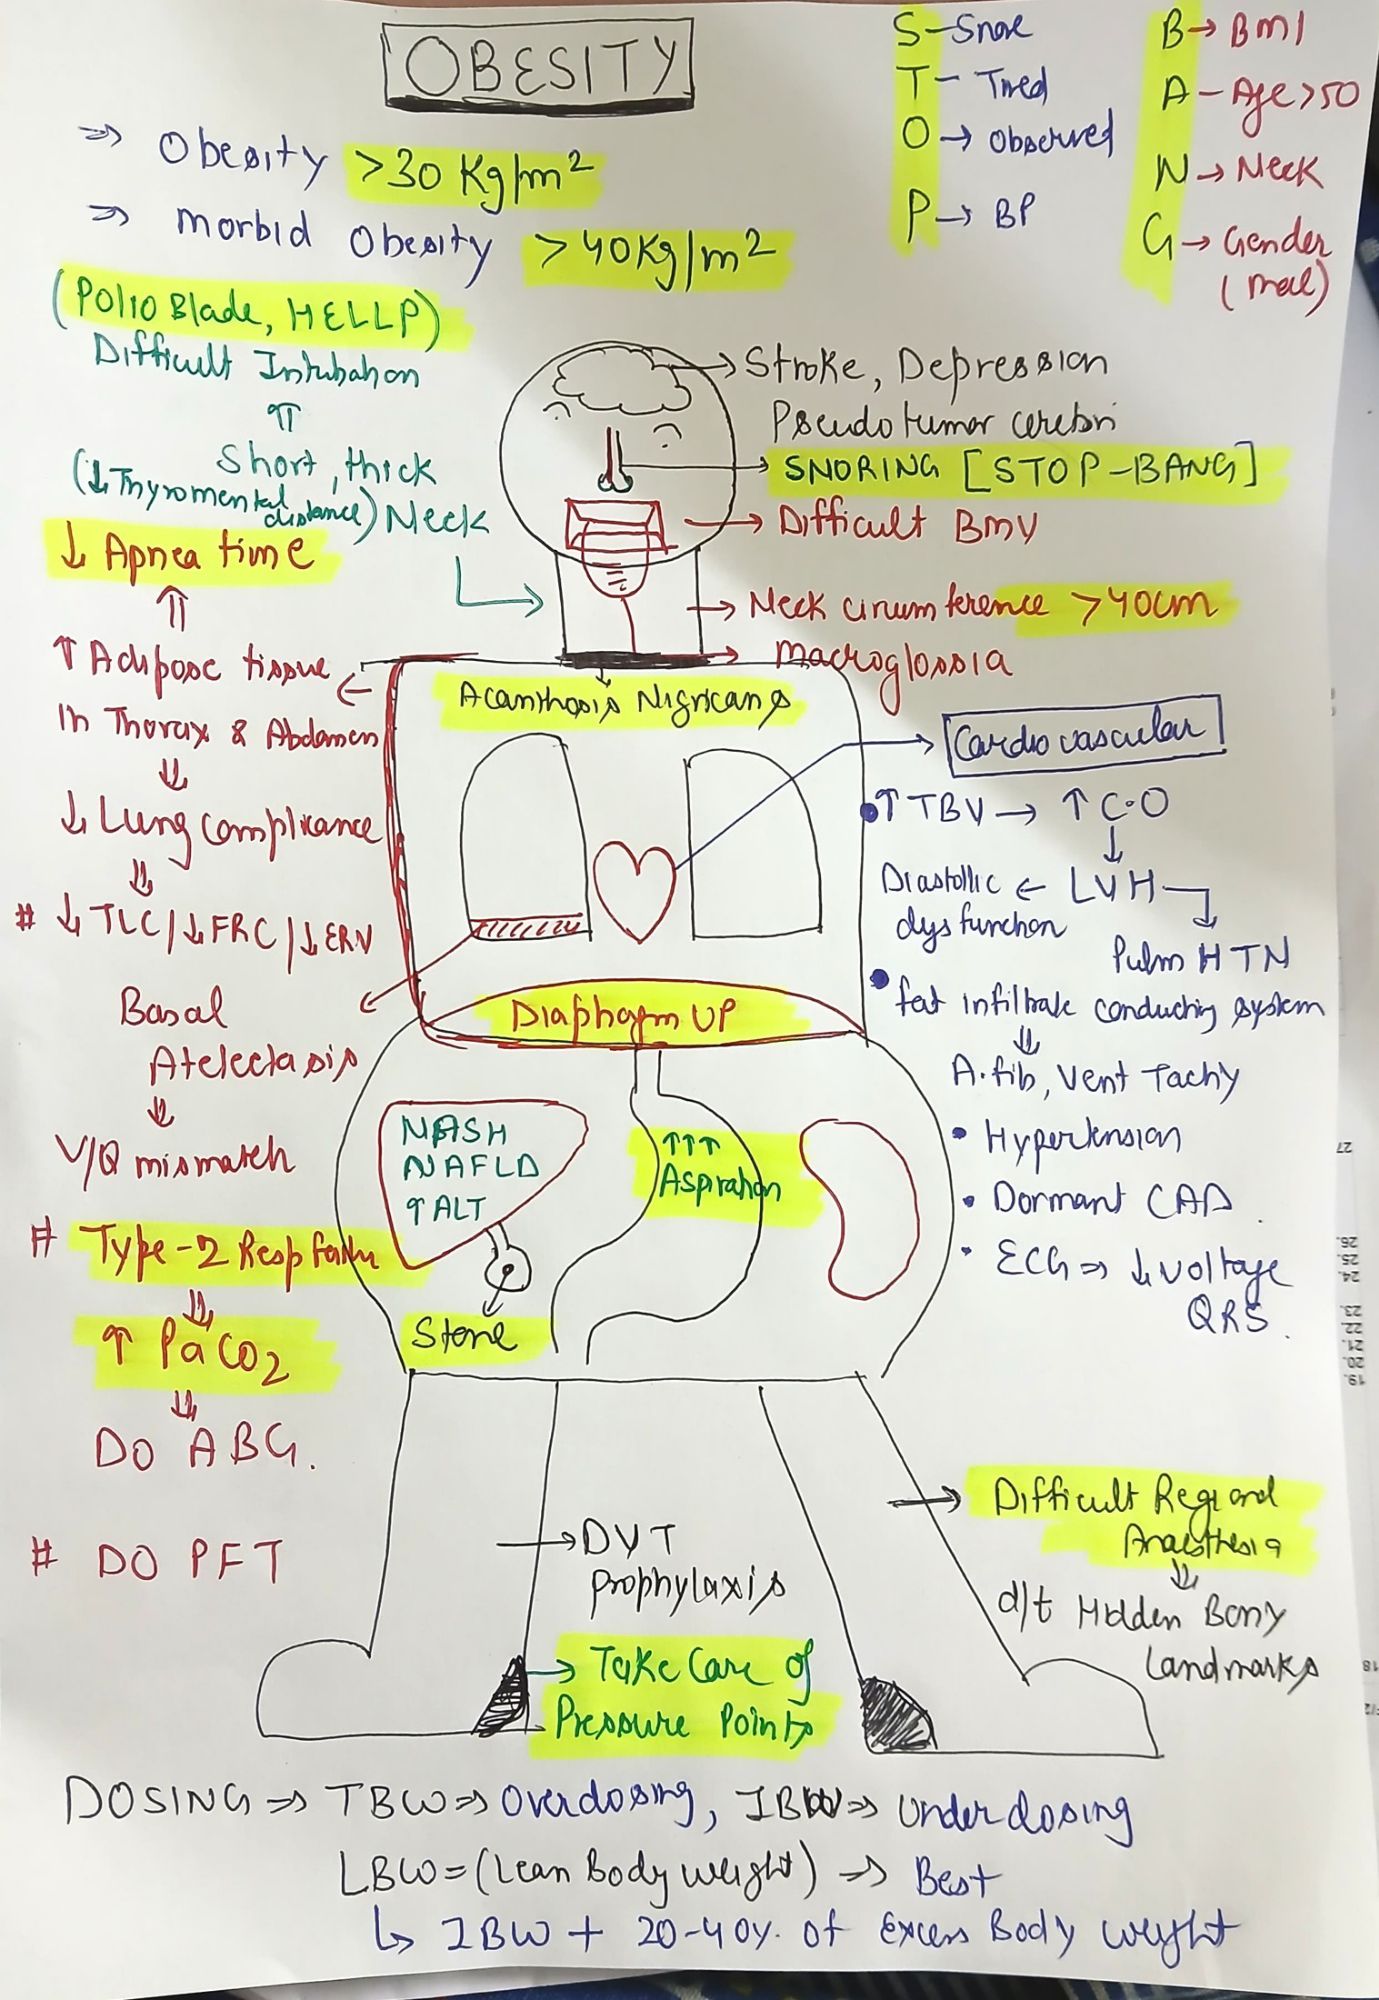 OBESITY
S - Snore
T - Tired
O → Observed
P → BP
B → BMI
A - Age >50
N → Neck
G → Gender
(male)
⇒ Obesity >30 Kg/m²
⇒ morbid Obesity >40Kg/m²
(Polio Blade, HELLP)
Difficult Intubation
⇑
Short, thick
(↓ Thyromental distance) Neck
↓ Apnea time
⇑
↑ Adipose tissue
in Thorax & Abdomen
⇓
↓ Lung compliance
⇓
# ↓ TLC/↓FRC/↓ERV
Basal
Atelectasis
⇓
V/Q mismatch
# Type-2 Resp failure
⇓
↑ PaCO2
⇓
DO ABG.
# DO PFT
→ Stroke, Depression
Pseudo tumor cerebri
→ SNORING [STOP-BANG]
→ Difficult BMV
→ Neck circumference >40cm
→ macroglossia
Acanthosis Nigricans
Cardiovascular
• ↑ TBV → ↑ C.O
↓
Diastolic ← LVH
dysfunction
Pulm HTN
• fat infiltrate conducting system
⇓
A.fib, Vent Tachy
• Hypertension
• Dormant CAD
• ECG ⇒ ↓ voltage
QRS.
Diaphragm UP
NASH
NAFLD
↑ ALT
↑↑↑
Aspiration
Stone
→ DVT
prophylaxis
→ Take Care of
Pressure Points
→ Difficult Regional
Anaesthesia
⇓
d/t Hidden Bony
Landmarks
DOSING ⇒ TBW ⇒ Overdosing, IBW ⇒ Underdosing
LBW = (Lean Body weight) → Best
↳ IBW + 20-40% of Excess Body weight
27
26.
25.
24.
23.
22.
21.
20.
19.
18